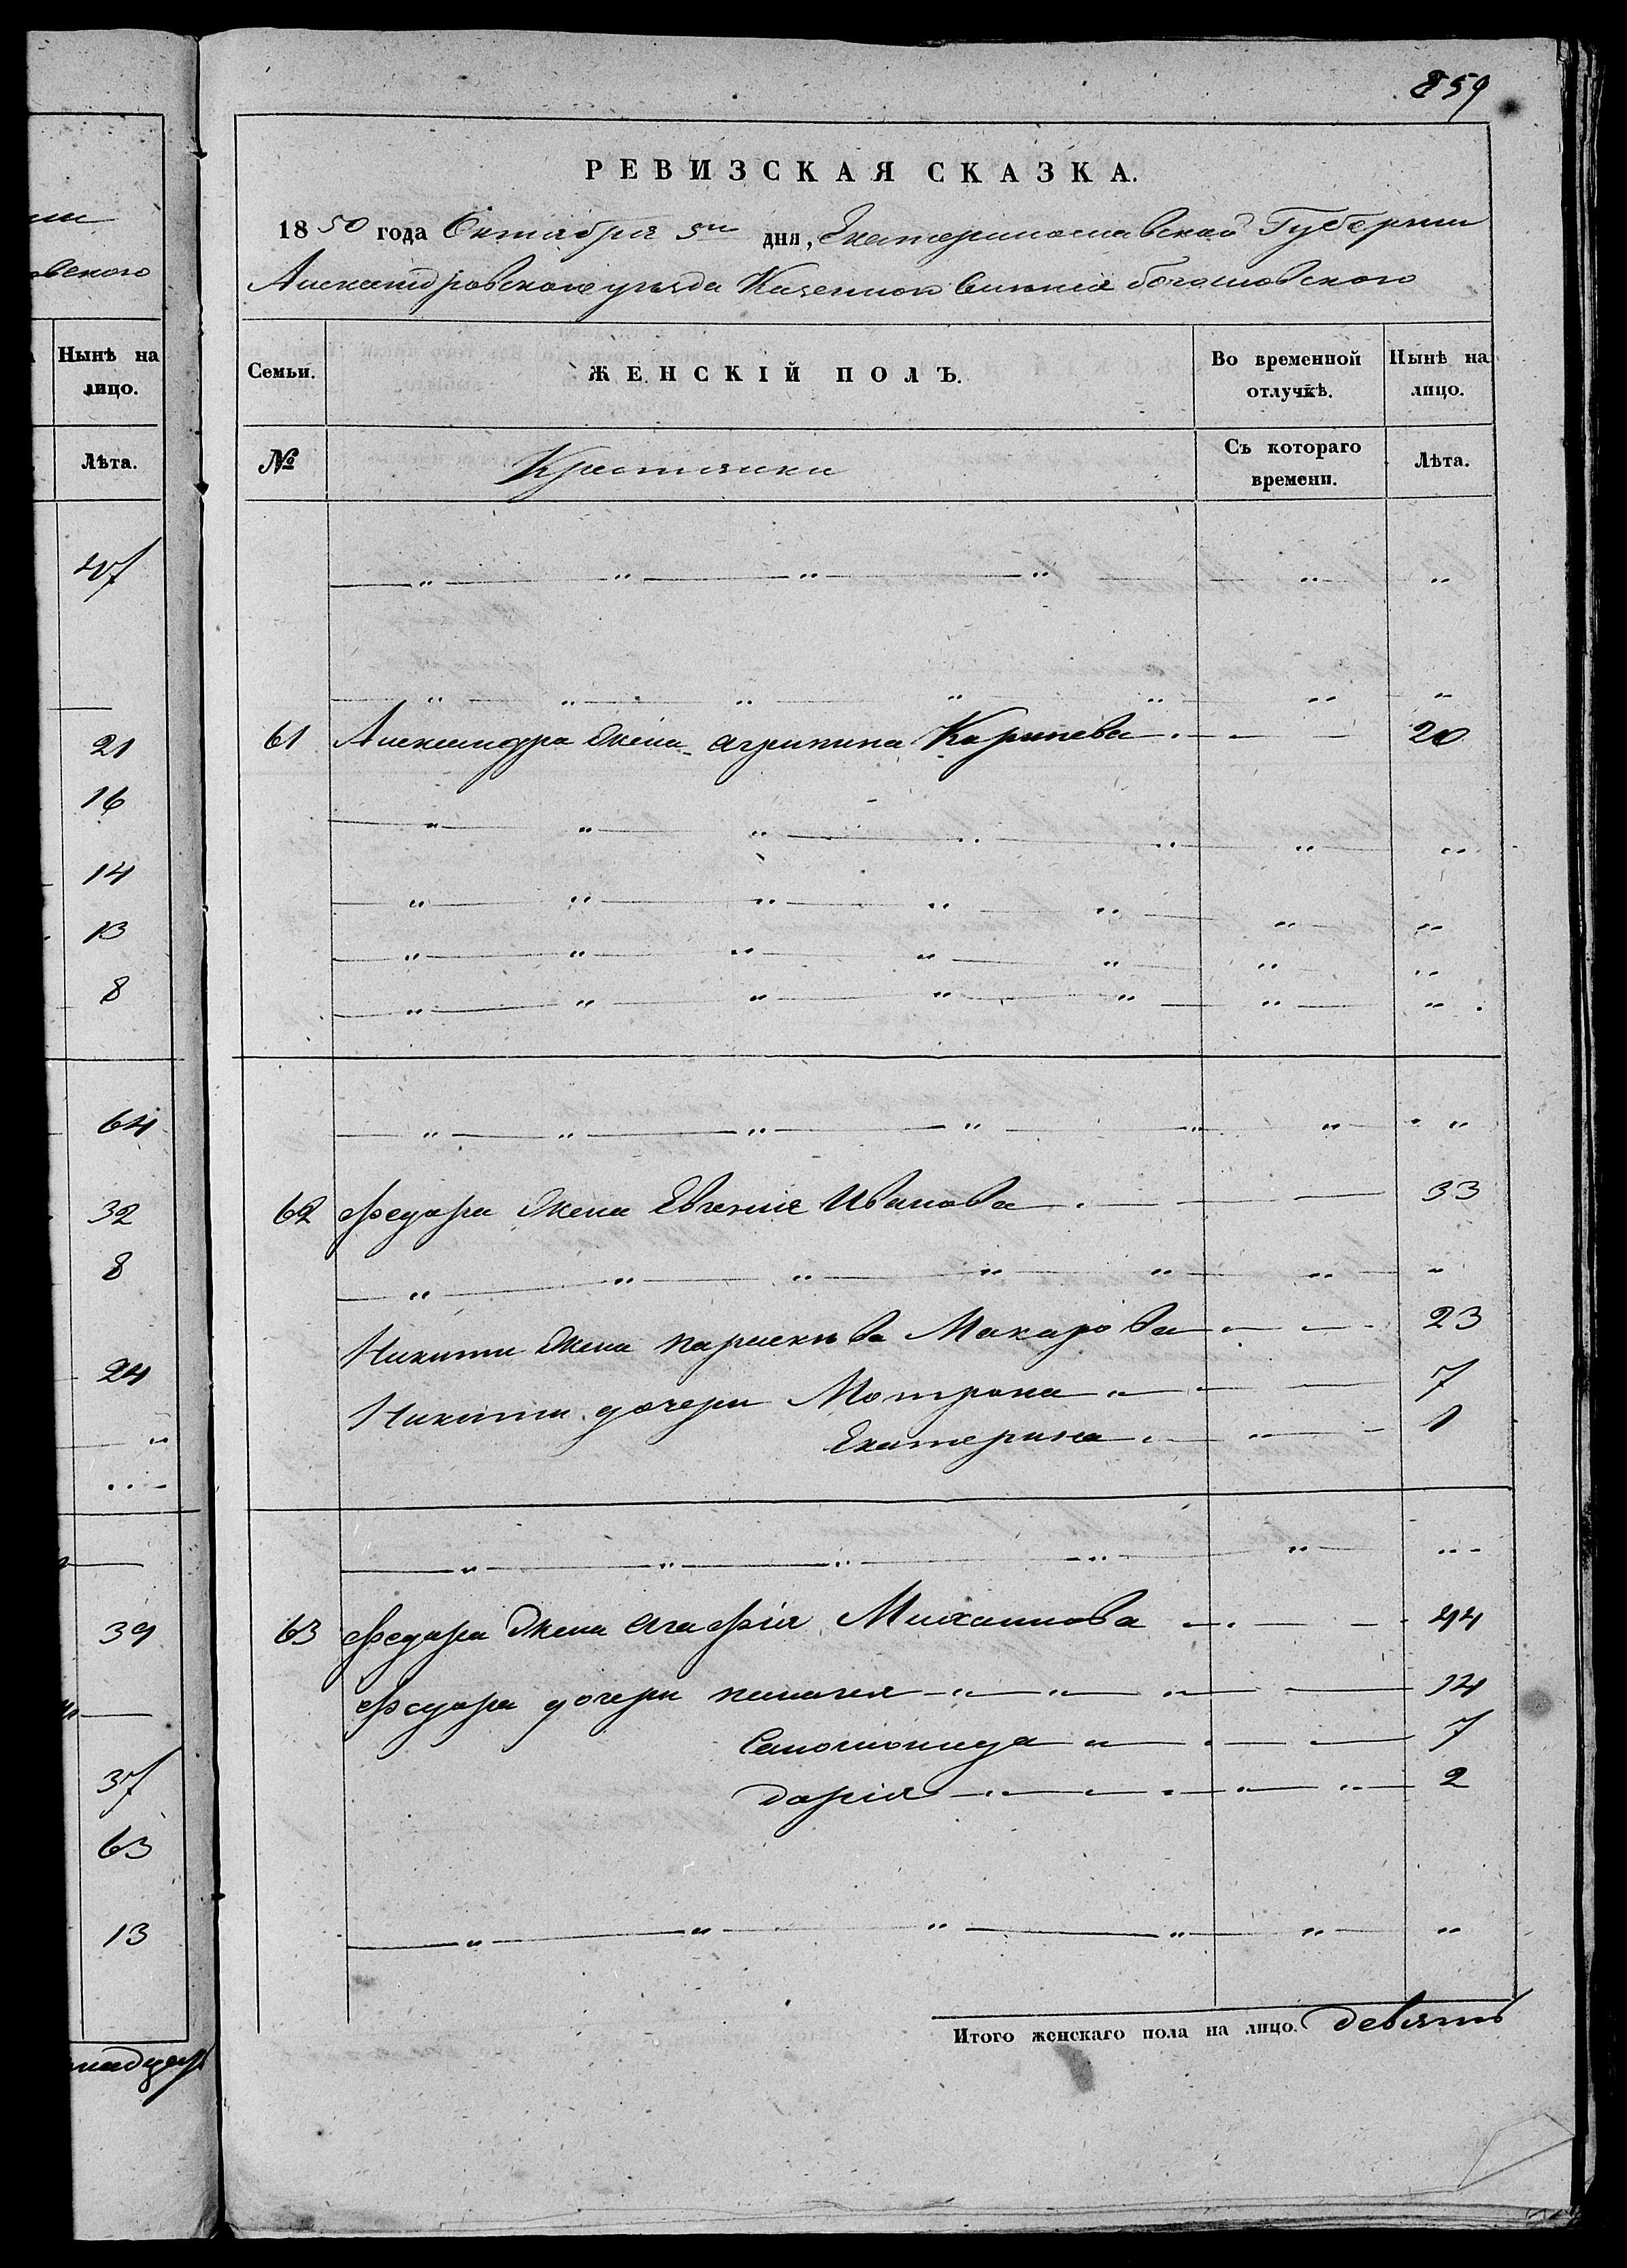 859
нии
овского
Нынѣ на
лицо.
Лѣта.
47
21
16
14
13
8
64
32
8
24
39
37
63
13
надцать
РЕВИЗСКАЯ СКАЗКА.
1850 года Октября 5го дня, Екатеринославской Губернии
Александровского уезда Казенного Селения
Семьи. ЖЕНСКІЙ ПОЛЪ. Во временной отлучкѣ. Нынѣ на лицо.
№ Крестянки Съ котораго времени. Лѣта.
61 Александра жена агрипина Карпеева 20
62 Федора жена Евгения Иванова 33
Никиты жена парасковья Макарова 23
Никиты дочери Мотрона 7
Екатерина 1
63 Федора жена агафія Михаилова 44
Федора дочери пелагея 14
Соломонида 7
дарія 2
Итого женскаго пола на лицо. девять